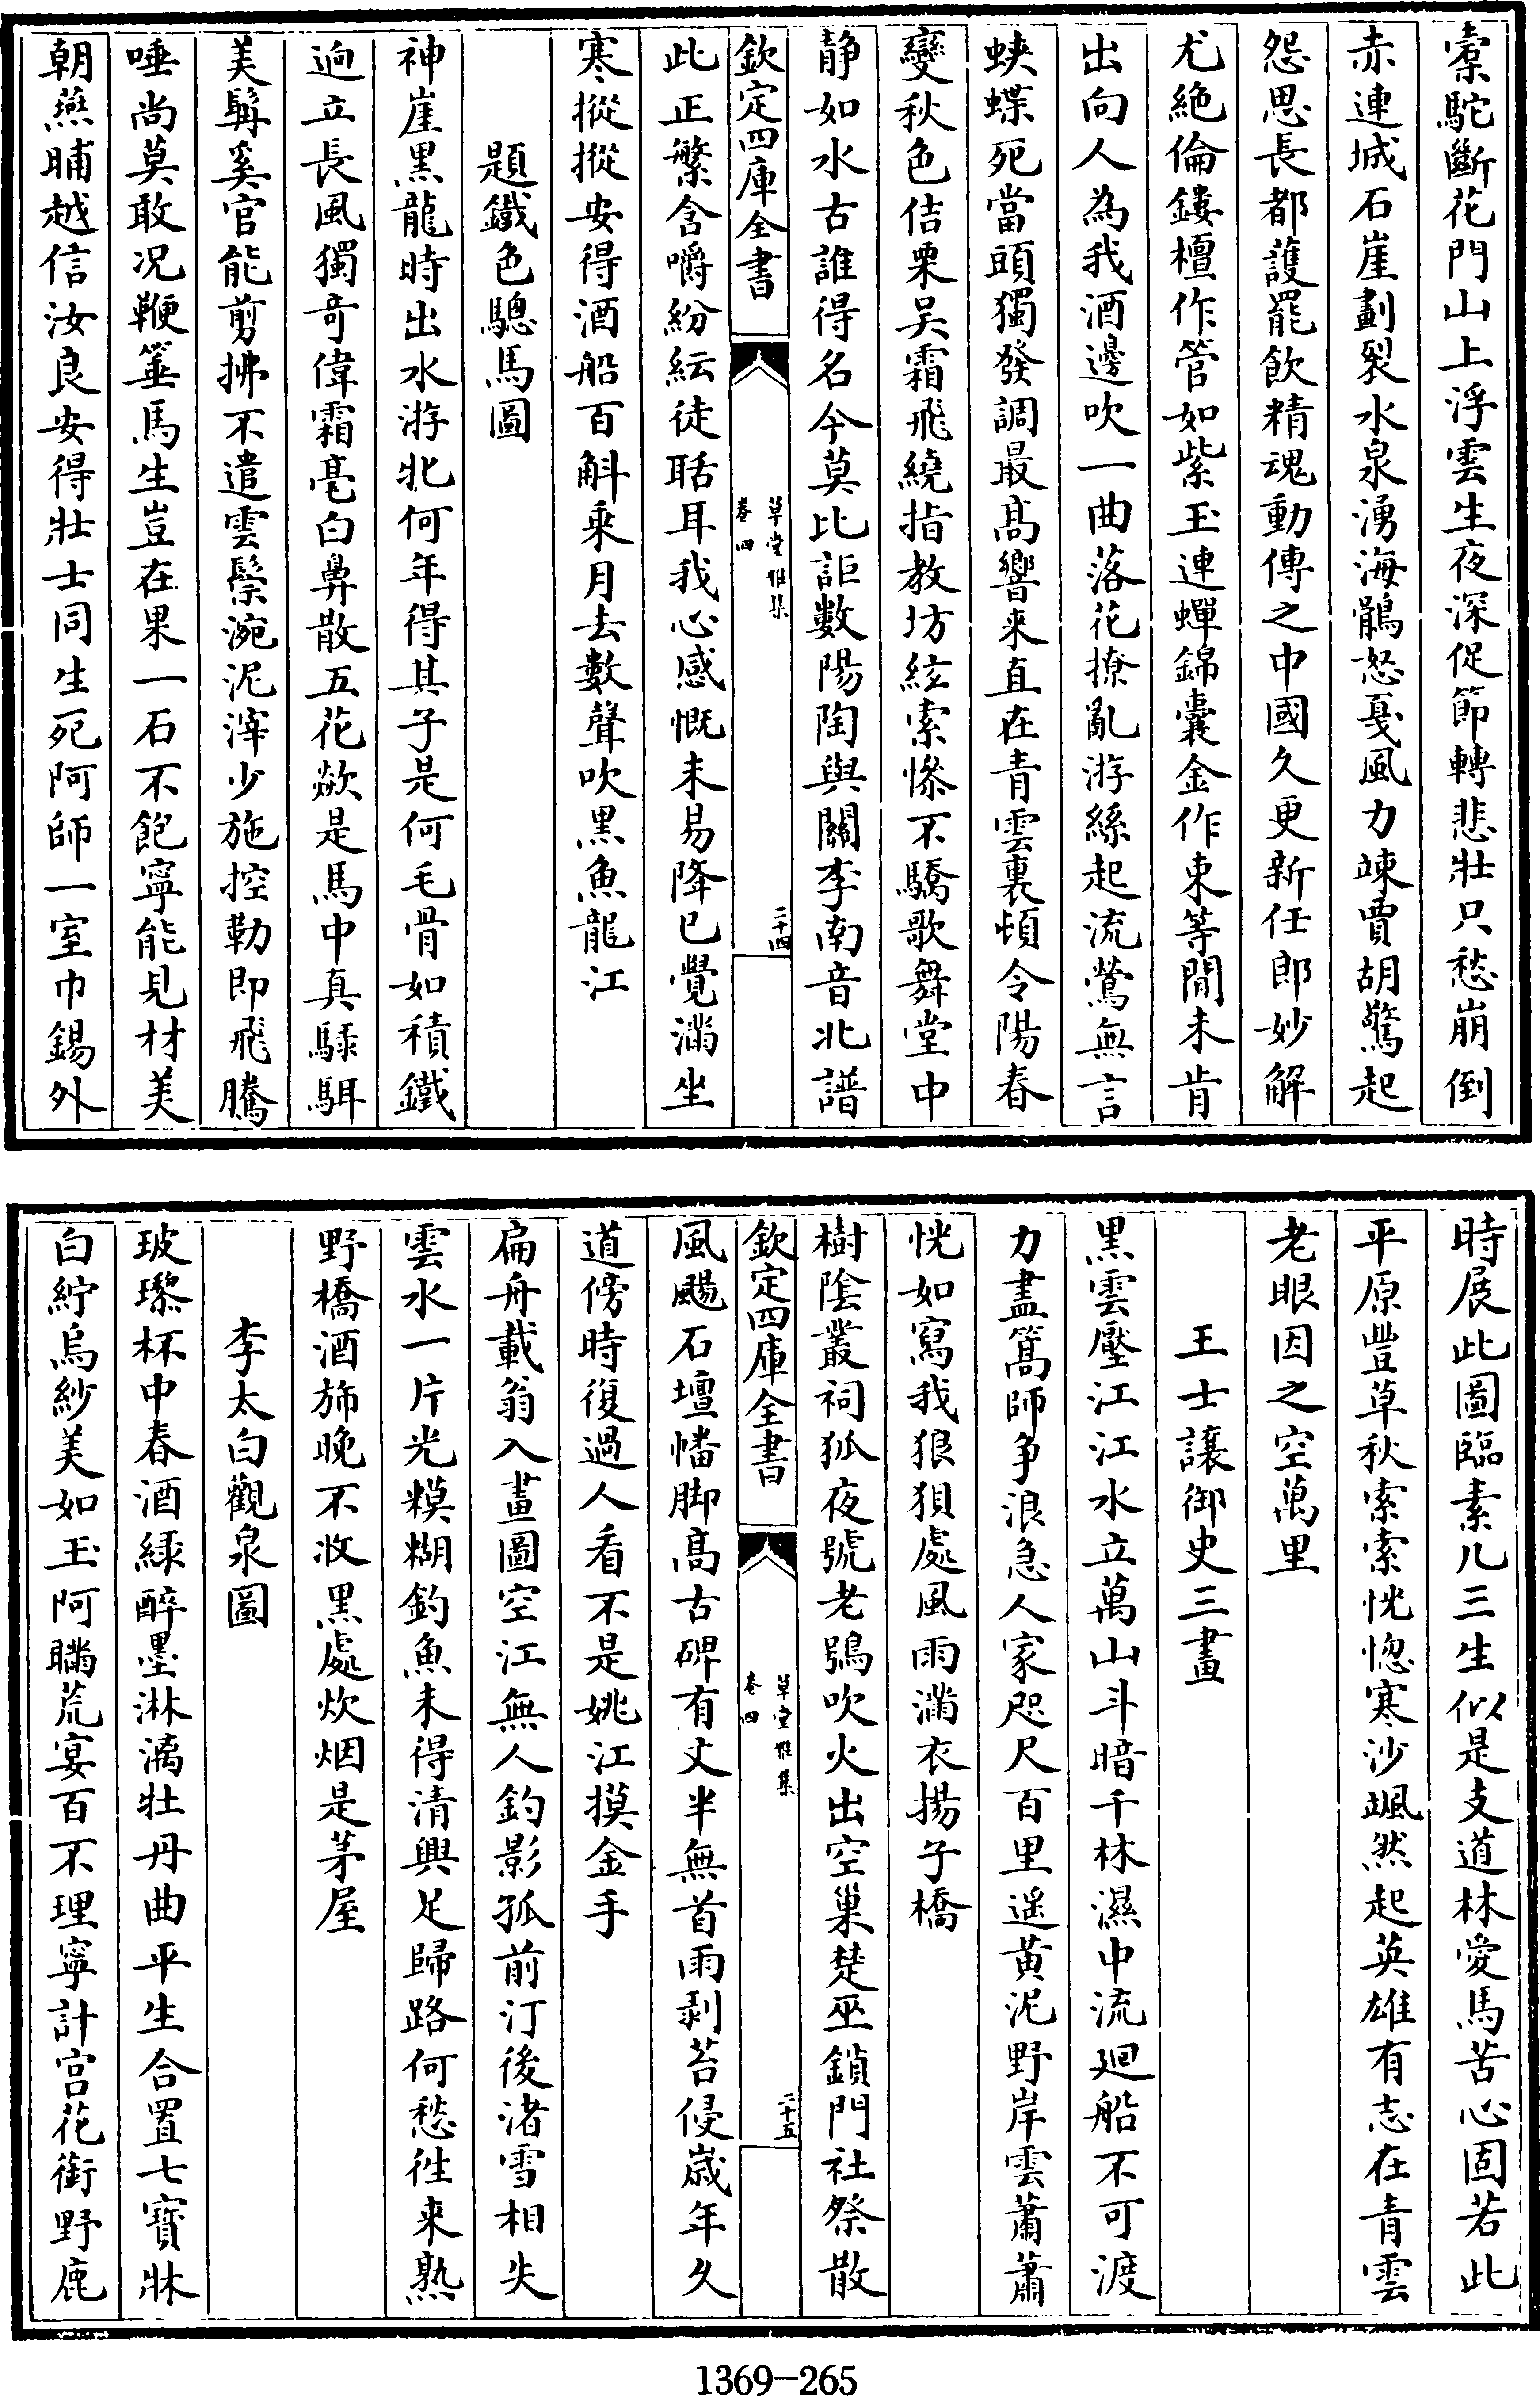 槖駝斷花門山上浮雲生夜深促節轉悲壯只愁崩倒
赤連城石崖劃裂水泉湧海鶻怒戛風力竦賈胡驚起
怨思長都護罷飲精魂動傳之中國久更新任郎妙解
尤絶倫鏤檀作管如紫玉連蟬錦囊金作束等閒未肯
出向人為我酒邊吹一曲落花撩亂游絲起流鶯無言
蛺蝶死當頭獨發調最髙響来直在青雲裏頓令陽春
變秋色佶栗吴霜飛繞指教坊絃索慘不驕歌舞堂中
静如水古誰得名今莫比詎數陽陶與關李南音北譜
欽定四庫全書
草堂雅集
卷四
二十四
此正繁含嚼紛紜徒聒耳我心感慨未易降已覺滿坐
寒摐摐安得酒船百斛乘月去數聲吹黒魚龍江
題鐵色驄馬圖
神崖黒龍時出水游牝何年得其子是何毛骨如積鐵
逈立長風獨竒偉霜毫白鼻散五花歘是馬中真騄駬
美髯奚官能剪拂不遣雲鬃涴泥滓少施控勒即飛騰
唾尚莫敢况鞭箠馬生豈在果一石不飽寧能見材美
朝燕晡越信汝良安得壯士同生死阿師一室巾錫外
時展此圖臨素几三生似是支道林愛馬苦心固若此
平原豐草秋索索恍惚寒沙颯然起英雄有志在青雲
老眼因之空萬里
王士讓御史三畫
黒雲壓江江水立萬山斗暗千林濕中流廻船不可渡
力盡篙師争浪急人家咫尺百里遥黄泥野岸雲蕭蕭
恍如寫我狼狽處風雨滿衣揚子橋
樹陰叢祠狐夜號老鴞吹火出空巢楚巫鎖門社祭散
欽定四庫全書
草堂雅集
卷四
二十五
風颺石壇幡脚髙古碑有文半無首雨剥苔侵歲年久
道傍時復過人看不是姚江摸金手
扁舟載翁入畫圖空江無人釣影孤前汀後渚雪相失
雲水一片光糢糊釣魚未得清興足歸路何愁徃来熟
野橋酒斾晚不收黒處炊烟是茅屋
李太白觀泉圖
玻瓈杯中春酒緑醉墨淋漓牡丹曲平生合置七寳牀
白紵烏紗美如玉阿瞞荒宴百不理寧計宫花銜野鹿
1369-265